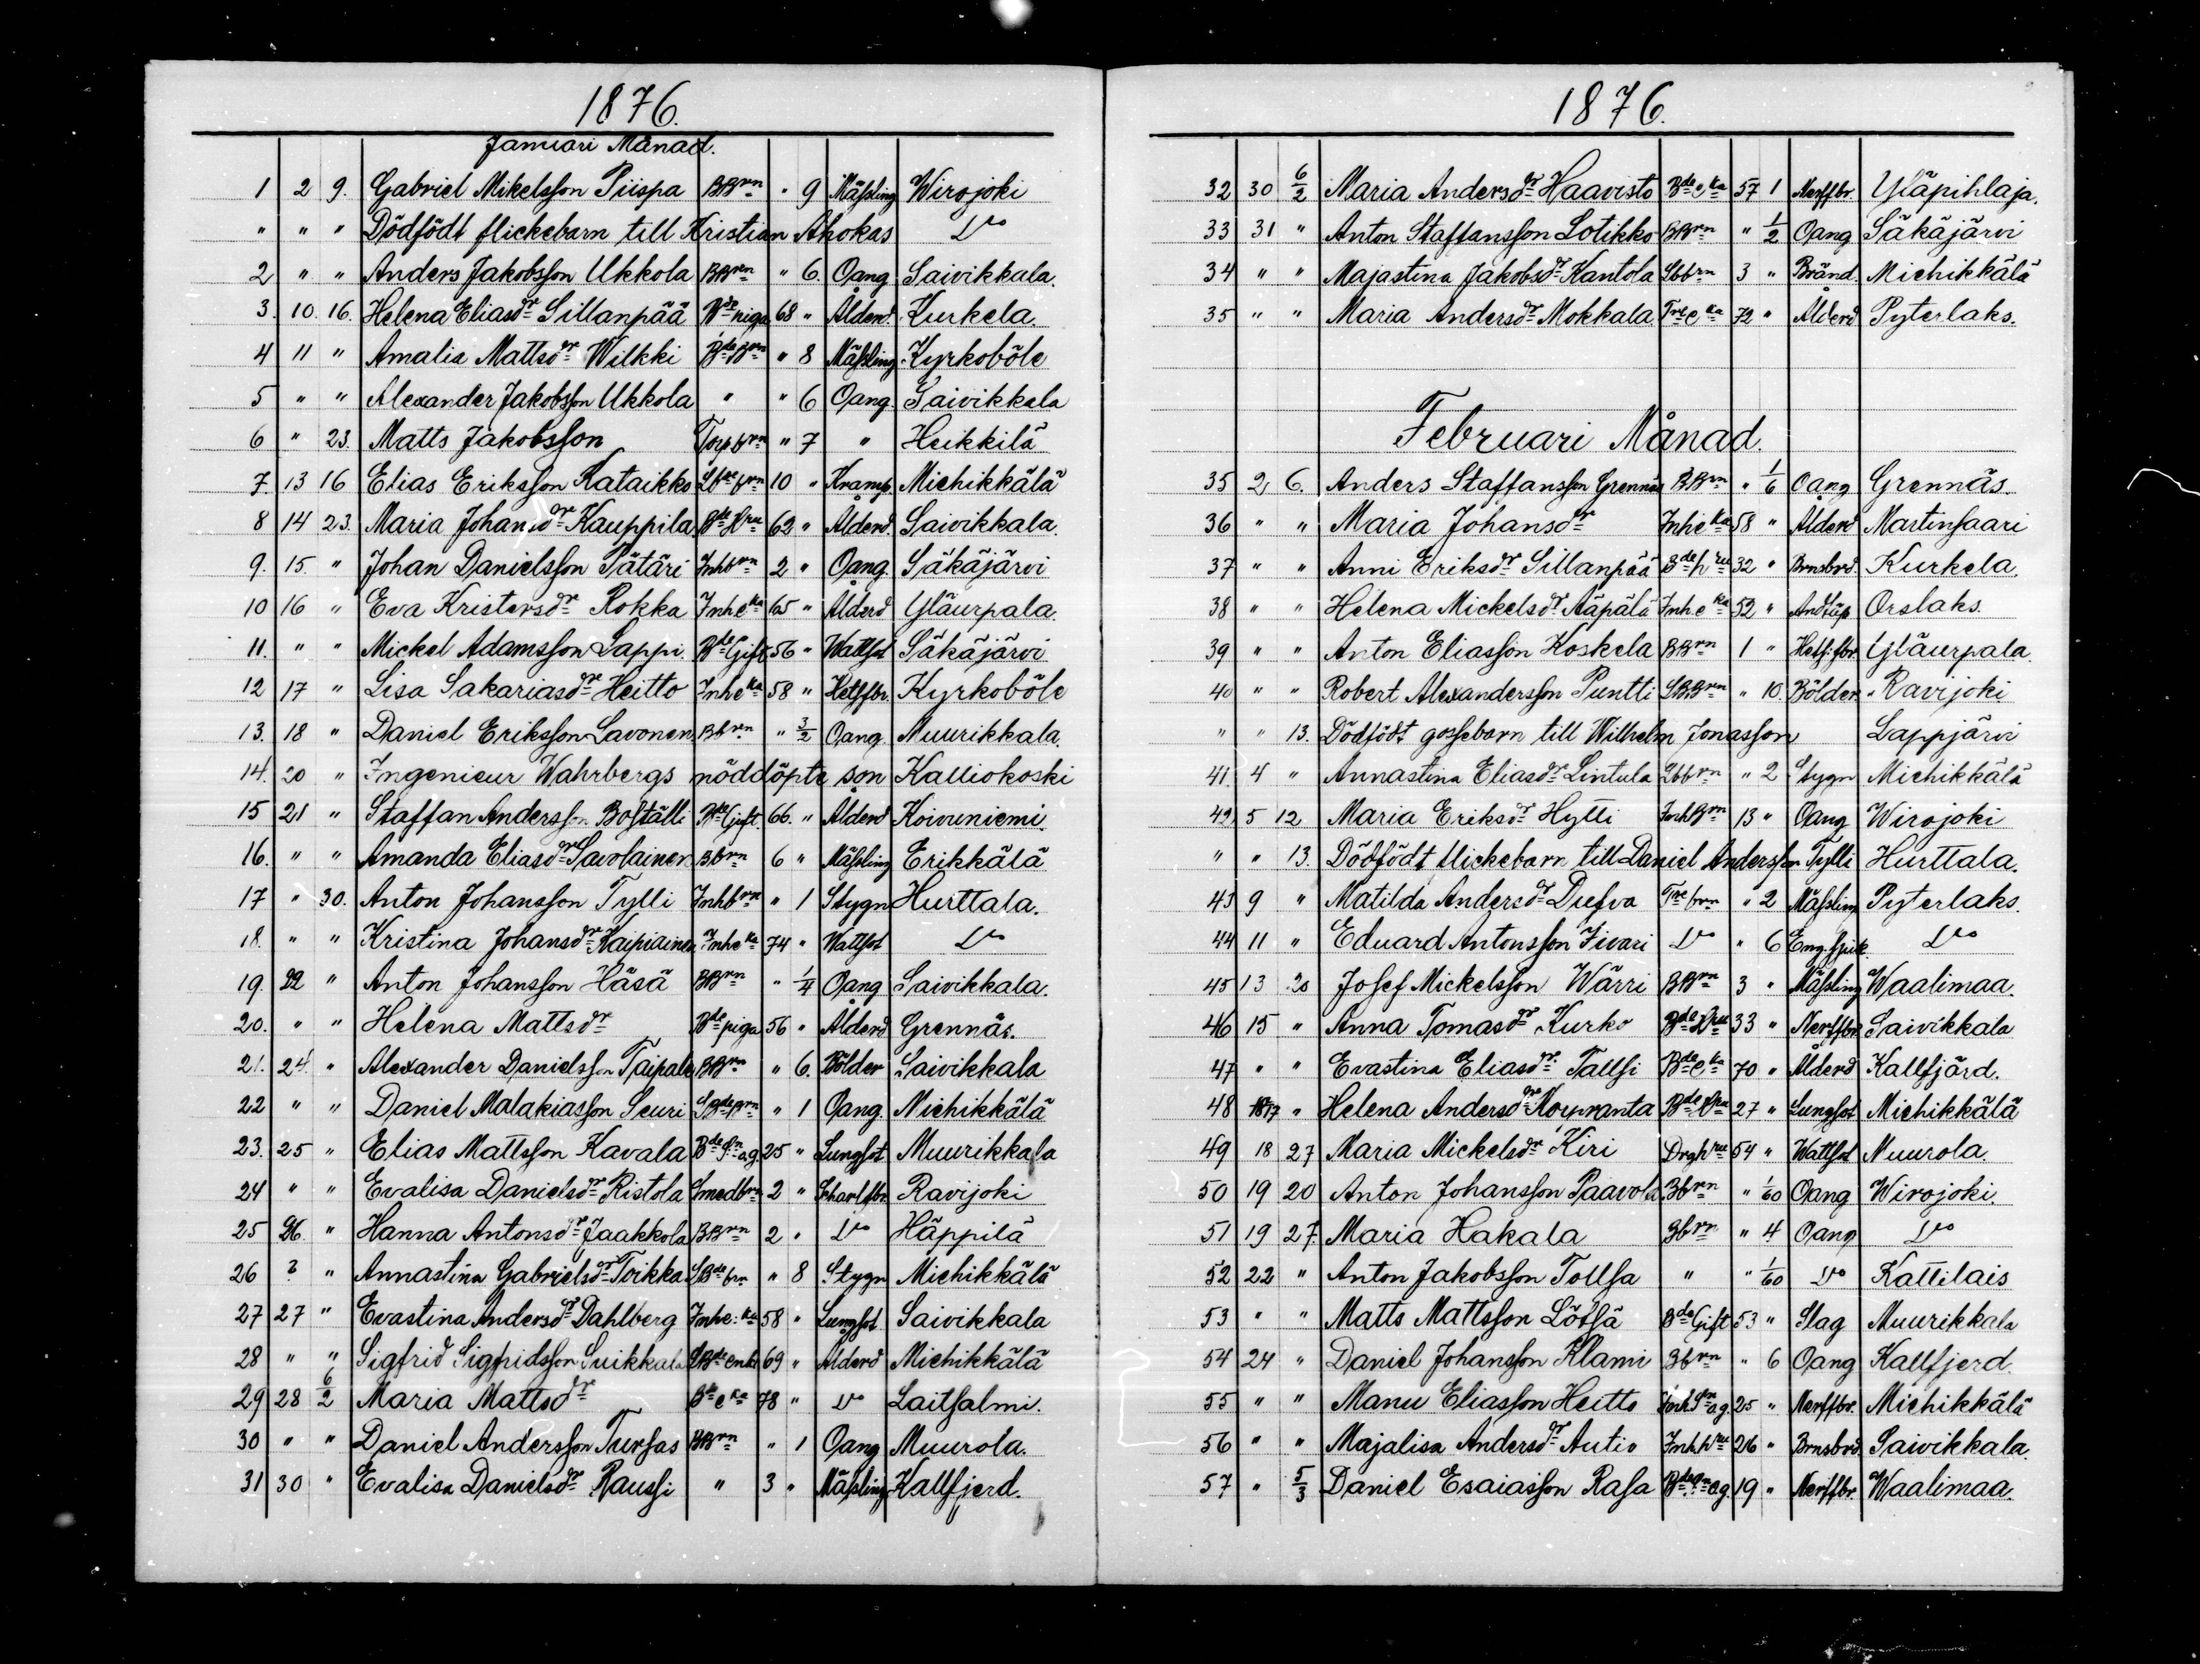 1876.
Januari Månad.
1 2 9. Gabriel Mikelsson Piispa BBrn " 9 Mässling Wirojoki
" " " Dödfödt flickebarn till Kristian Ahokas Do
2 " " Anders Jakobsson Ukkola BBrn " 6. Oang Saivikkala.
3. 10. 16. Helena Eliasdr Sillanpää Bde piga 68 " Ålderd. Kurkela.
4 11 " Amalia Mattsdr Wilkki BdeBrn " 8 Mässling Kyrkoböle
5 " " Alexander Jakobsson Ukkola " " 6 Oang Saivikkala
6 " 23. Matts Jakobsson Torpbrn " 7 " Heikkilä
7. 13 16 Elias Eriksson Kataikko brn 10 " Kramp. Michikkälä
8 14 23. Maria Johansdr Kauppila Bde Hru 62 " Ålderd. Saivikkala.
9. 15. " Johan Danielsson Pätäri Inhbrn 2 " Oang. Säkäjärvi
10 16 " Eva Kristersdr Rokka Inheka 65 " Ålderd Yläurpala.
11. " " Mickel Adamsson Lappi Bde Gift 56 " Wattsot Säkäjärvi
12 17 " Lisa Sakariasdr Heitto Inheka 58 " Hetsfbr. Kyrkoböle
13. 18 " Daniel Eriksson Lavonen Bbrn " 3/2 Oang. Muurikkala.
14. 20 " Ingenieur Wahrbergs nöddöpte son Kalliokoski
15 21 " Staffan Andersson Boställi Bde Gift. 66. " Ålderd Koivuniemi.
16. " " Amanda Eliasdr Savolainen Bbrn 6 " Mässling Erikkälä
17 " 30. Anton Johansson Tylli Inhbrn " 1 Stygn Hurttala.
18. " " Kristina Johansdr Kaipiainen Inheka 74 " Wattsot Do
19. 22 " Anton Johansson Häsä BBrn " 1/4 Oang Saivikkala.
20. " " Helena Mattsdr Bde piga 56 " Ålderd Grennäs.
21. 24. " Alexander Danielsson Taipale BBrn " 6. Bölder Saivikkala
22 " " Daniel Malakiasson Seuri SBdeBrn " 1 Oang. Michikkälä
23. 25 " Elias Mattsson Kavala Bde Sn ag. 25 " Lungsot Muurikkala
24 " " Evalisa Danielsdr Ristola Smedbrn 2 " Scharlfbr. Ravijoki
25 26. " Hanna Antonsdr Jaakkola BBrn 2 " Do Häppilä
26 ? " Annastina Gabrielsdr Toikka SBdebrn " 8 Stygn Michikkälä
27 27 " Evastina Andersdr Dahlberg Inhe:ka 58 " Lungsot Saivikkala
28 " " Sigfrid Sigfridsson Suikkala SBde enkl 69 " Ålderd Michikkälä
29 28 6/2 Maria Mattsdr Bde eka 78 " Do Laitsalmi.
30 " " Daniel Andersson Tursas BBrn " 1 Oang Muurola.
31 30 " Evalisa Danielsdr Raussi " 3 " Mässling Kallfjerd.
1876.
32 30 6/2 Maria Andersdr Haavisto Bde eka 57 1 Nerffbr. Yläpihlaja.
33 31 " Anton Staffansson Lotikko BBrn " 1/2 Oang Säkäjärvi
34 " " Majastina Jakobsdr Kantola Lbbrn 3 " Bränd. Michikkälä
35 " " Maria Andersdr Mokkala Tre eka 72 " Ålderd Pyterlaks.
Februari Månad.
35 2 6. Anders Staffansson Grennäs BBrn " 1/6 Oang Grennäs.
36 " " Maria Johansdr Inheka 58 " Ålderd Martinsaari
37 " " Anni Eriksdr Sillanpää Bde hru 32 " Brnsbrd. Kurkela.
38 " " Helena Mickelsdr Ääpälä Inheka 52 " Andtäp Orslaks.
39 " " Anton Eliasson Koskela BBrn 1 " Hetsfbr. Yläurpala
40 " " Robert Alexandersson Puntti SBBrn " 10. Bölder " Ravijoki
" " 13. Dödfödt gossebarn till Wilhelm Jonasson Lappjärvi
41. 4 " Annastina Eliasdr Lintula Lbbrn " 2 Stygn Michikkälä
42. 5 12 Maria Eriksdr Hytti InhBrn 13 " Oang Wirojoki
" " 13. Dödfödt flickebarn till Daniel Andersson Tylli Hurttala.
43 9 " Matilda Andersdr Dufva Tre brn " 2 Mässling Pyterlaks.
44 11 " Eduard Antonsson Iivari Do " 6 Eng.sjuk. Do
45 13 20 Josef Mickelsson Wärri BBrn 3 " Mässling Waalimaa.
46 15 " Anna Tomasdr Kurko Bde Hru 33 " Nerffbr Saivikkala
47 " " Evastina Eliasdr Tallsi Bde eka 70 " Ålderd Kallfjärd.
48 17 " Helena Andersdr Korpranta Bde Hru 27 " Lungsot Michikkälä
49 18 27 Maria Mickelsdr Kiri Drghru 54 " Wattsot Muurola.
50 19 20 Anton Johansson Paavola Bbrn " 1/60 Oang Wirojoki.
51 19 27. Maria Hakala Bbrn " 4 Oang Do
52 22 " Anton Jakobsson Tollsa " " 1/60 Do Kattilais
53 " " Matts Mattsson Lötsä Bde Gift 53 " Slag Muurikkala
54 24 " Daniel Johansson Klami Bbrn " 6 Oang Kallfjerd.
55 " " Manu Eliasson Heitto Inh Sn ag 25 " Nerffbr. Michikkälä
56 " " Majalisa Andersdr Autio Inhhru 26 " Brnsbrd. Saivikkala.
57 " 5/3 Daniel Esaiasson Rasa Bde Sn ag 19 " Nerffbr. Waalimaa.